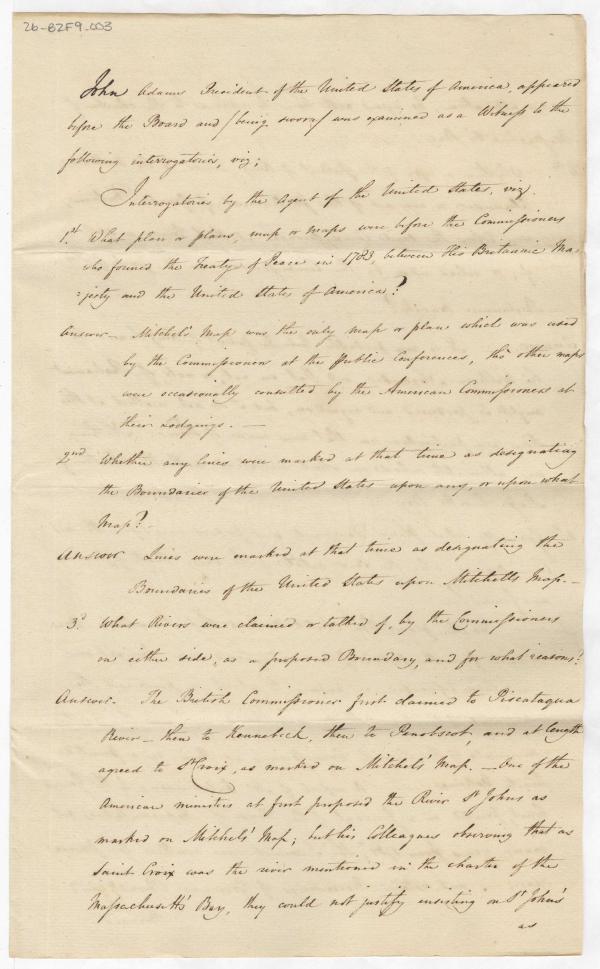 26-B2F9-003
John Adams President of the United States of America, appeared
before the Board and /being sworn/ was examined as a Witness to the
following interrogatories, viz;
Interrogatories by the Agent of the United States, viz.
1st. What plan or plans, map or maps were before the Commissioners
who formed the Treaty of Peace in 1783, between His Britannic Ma-
:jesty and the United States of America?
Answer — Mitchel's Map was the only map or plan which was used
by the Commissioners at the Public Conferences, tho' other maps
were occasionally consulted by the American Commissioners at
their Lodgings. —
2nd Whether any lines were marked at that time as designating
the Boundaries of the United States upon any, or upon what
Map? -
Answer Lines were marked at that time as designating the
Boundaries of the United States upon Mitchells Map. —
3d. What Rivers were claimed or talked of, by the Commissioners
on either side, as a proposed Boundary, and for what reasons?
Answer. The British Commissioner first claimed to Piscataqua
River — then to Kennebeck, then to Penobscot, and at length
agreed to St Croix, as marked on Mitchels' Map. — One of the
American ministers at first proposed the River St Johns as
marked on Mitchels' Map; but his Colleagues observing that as
Saint Croix was the river mentioned in the charter of the
Massachusetts Bay, they could not justify insisting on St John's
as